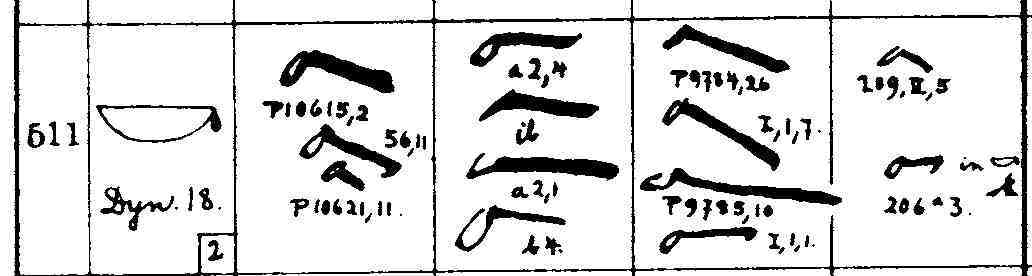 511
Dyn. 18.
2
P10615,2
56,11
P10621,11.
a2,4
ib
a2,1
b4.
P9784,26
I,1,7.
P9785,10
I,1,1.
209,II,5
in
206ª3.